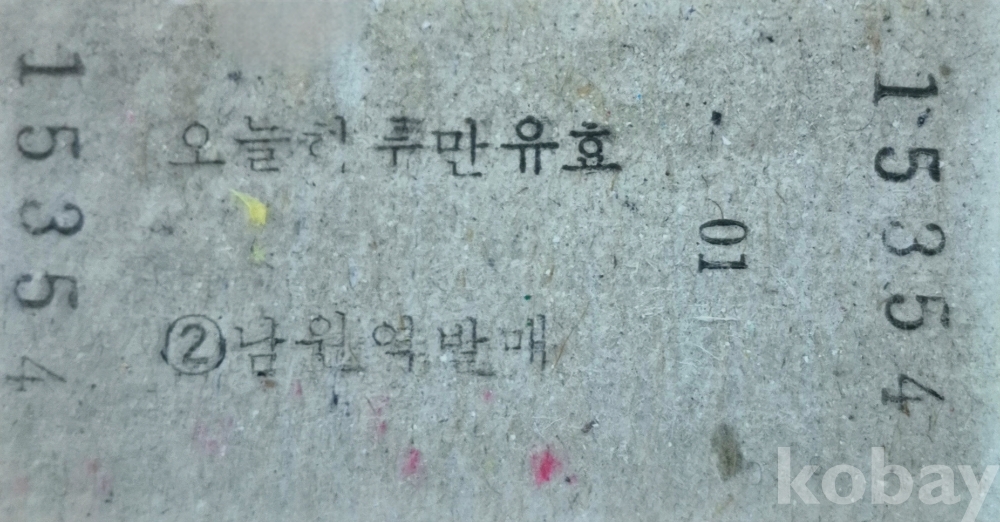 15354
오늘하루만유효
01
②남원역발매
15354
kobay